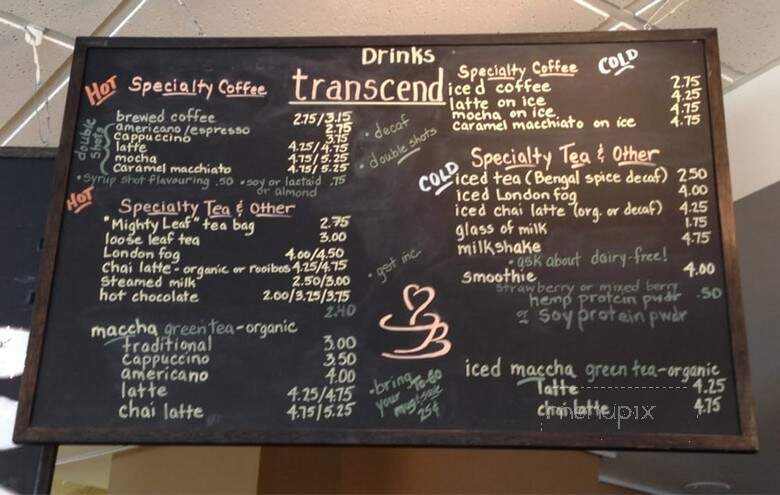 Drinks
transcend
HOT
Specialty Coffee
brewed coffee 2.75/3.15
americano/espresso 2.75
cappuccino 3.75
latte 4.25/4.75
mocha 4.75/5.25
caramel macchiato 4.75/5.25
double shots
• syrup shot flavouring .50 • soy or lactaid .75
or almond
• decaf
• double shots
HOT
Specialty Tea & Other
"Mighty Leaf" tea bag 2.75
loose leaf tea 3.00
London fog 4.00/4.50
chai latte - organic or rooibos 4.25/4.75
steamed milk 2.50/3.00
hot chocolate 2.00/3.25/3.75
2.40
• gst inc.
maccha green tea - organic
traditional 3.00
cappuccino 3.50
americano 4.00
latte 4.25/4.75
chai latte 4.75/5.25
• bring your To-Go mug & save 25¢
Specialty Coffee
COLD
iced coffee 2.75
latte on ice 4.25
mocha on ice 4.75
caramel macchiato on ice 4.75
Specialty Tea & Other
COLD
iced tea (Bengal spice decaf) 2.50
iced London fog 4.00
iced chai latte (org. or decaf) 4.25
glass of milk 1.75
milkshake 4.75
• ask about dairy-free!
smoothie 4.00
strawberry or mixed berry
hemp protein pwdr .50
or soy protein pwdr
iced maccha green tea - organic
latte 4.25
chai latte 4.75
menupix